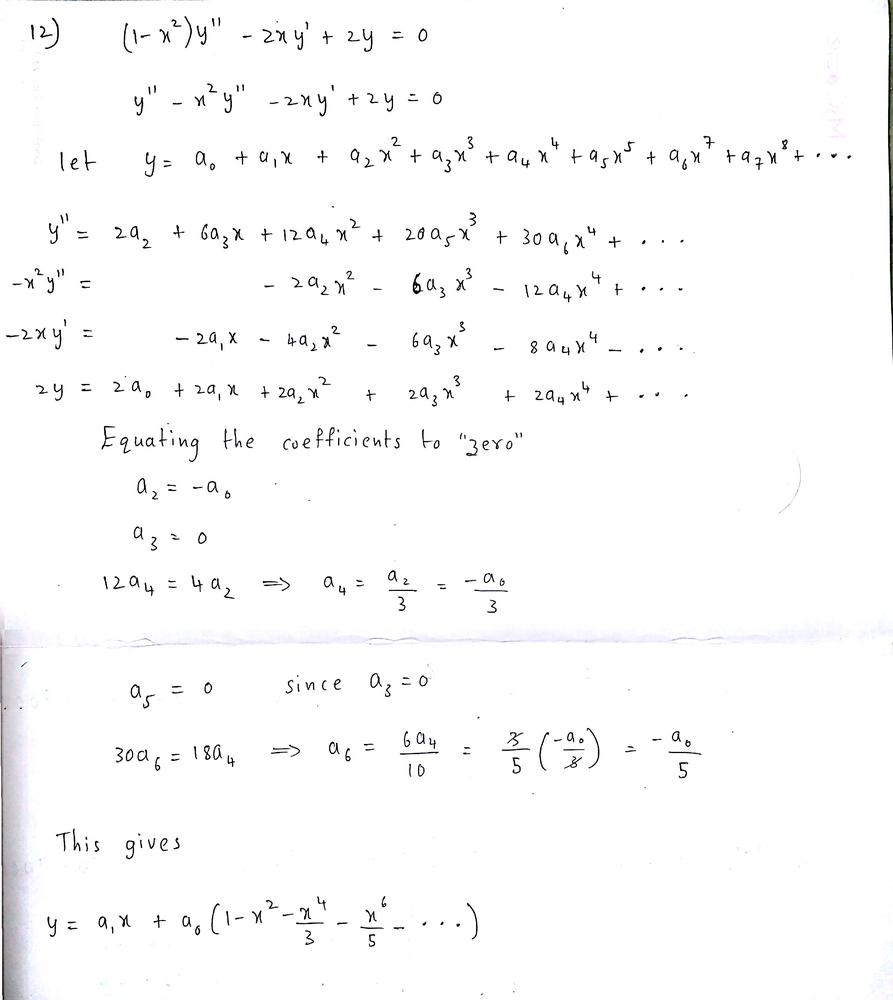 12) (1-x²)y'' - 2xy' + 2y = 0
y'' - x²y'' - 2xy' + 2y = 0
let y = a₀ + a₁x + a₂x² + a₃x³ + a₄x⁴ + a₅x⁵ + a₆x⁷ + a₇x⁸ + ...
y'' = 2a₂ + 6a₃x + 12a₄x² + 20a₅x³ + 30a₆x⁴ + ...
-x²y'' = - 2a₂x² - 6a₃x³ - 12a₄x⁴ + ...
-2xy' = - 2a₁x - 4a₂x² - 6a₃x³ - 8a₄x⁴ - ...
2y = 2a₀ + 2a₁x + 2a₂x² + 2a₃x³ + 2a₄x⁴ + ...
Equating the coefficients to "zero"
a₂ = -a₀
a₃ = 0
12a₄ = 4a₂ ⇒ a₄ = a₂/3 = -a₀/3
a₅ = 0 since a₃ = 0
30a₆ = 18a₄ ⇒ a₆ = 6a₄/10 = 3/5 (-a₀/3) = -a₀/5
This gives
y = a₁x + a₀(1 - x² - x⁴/3 - x⁶/5 - ...)